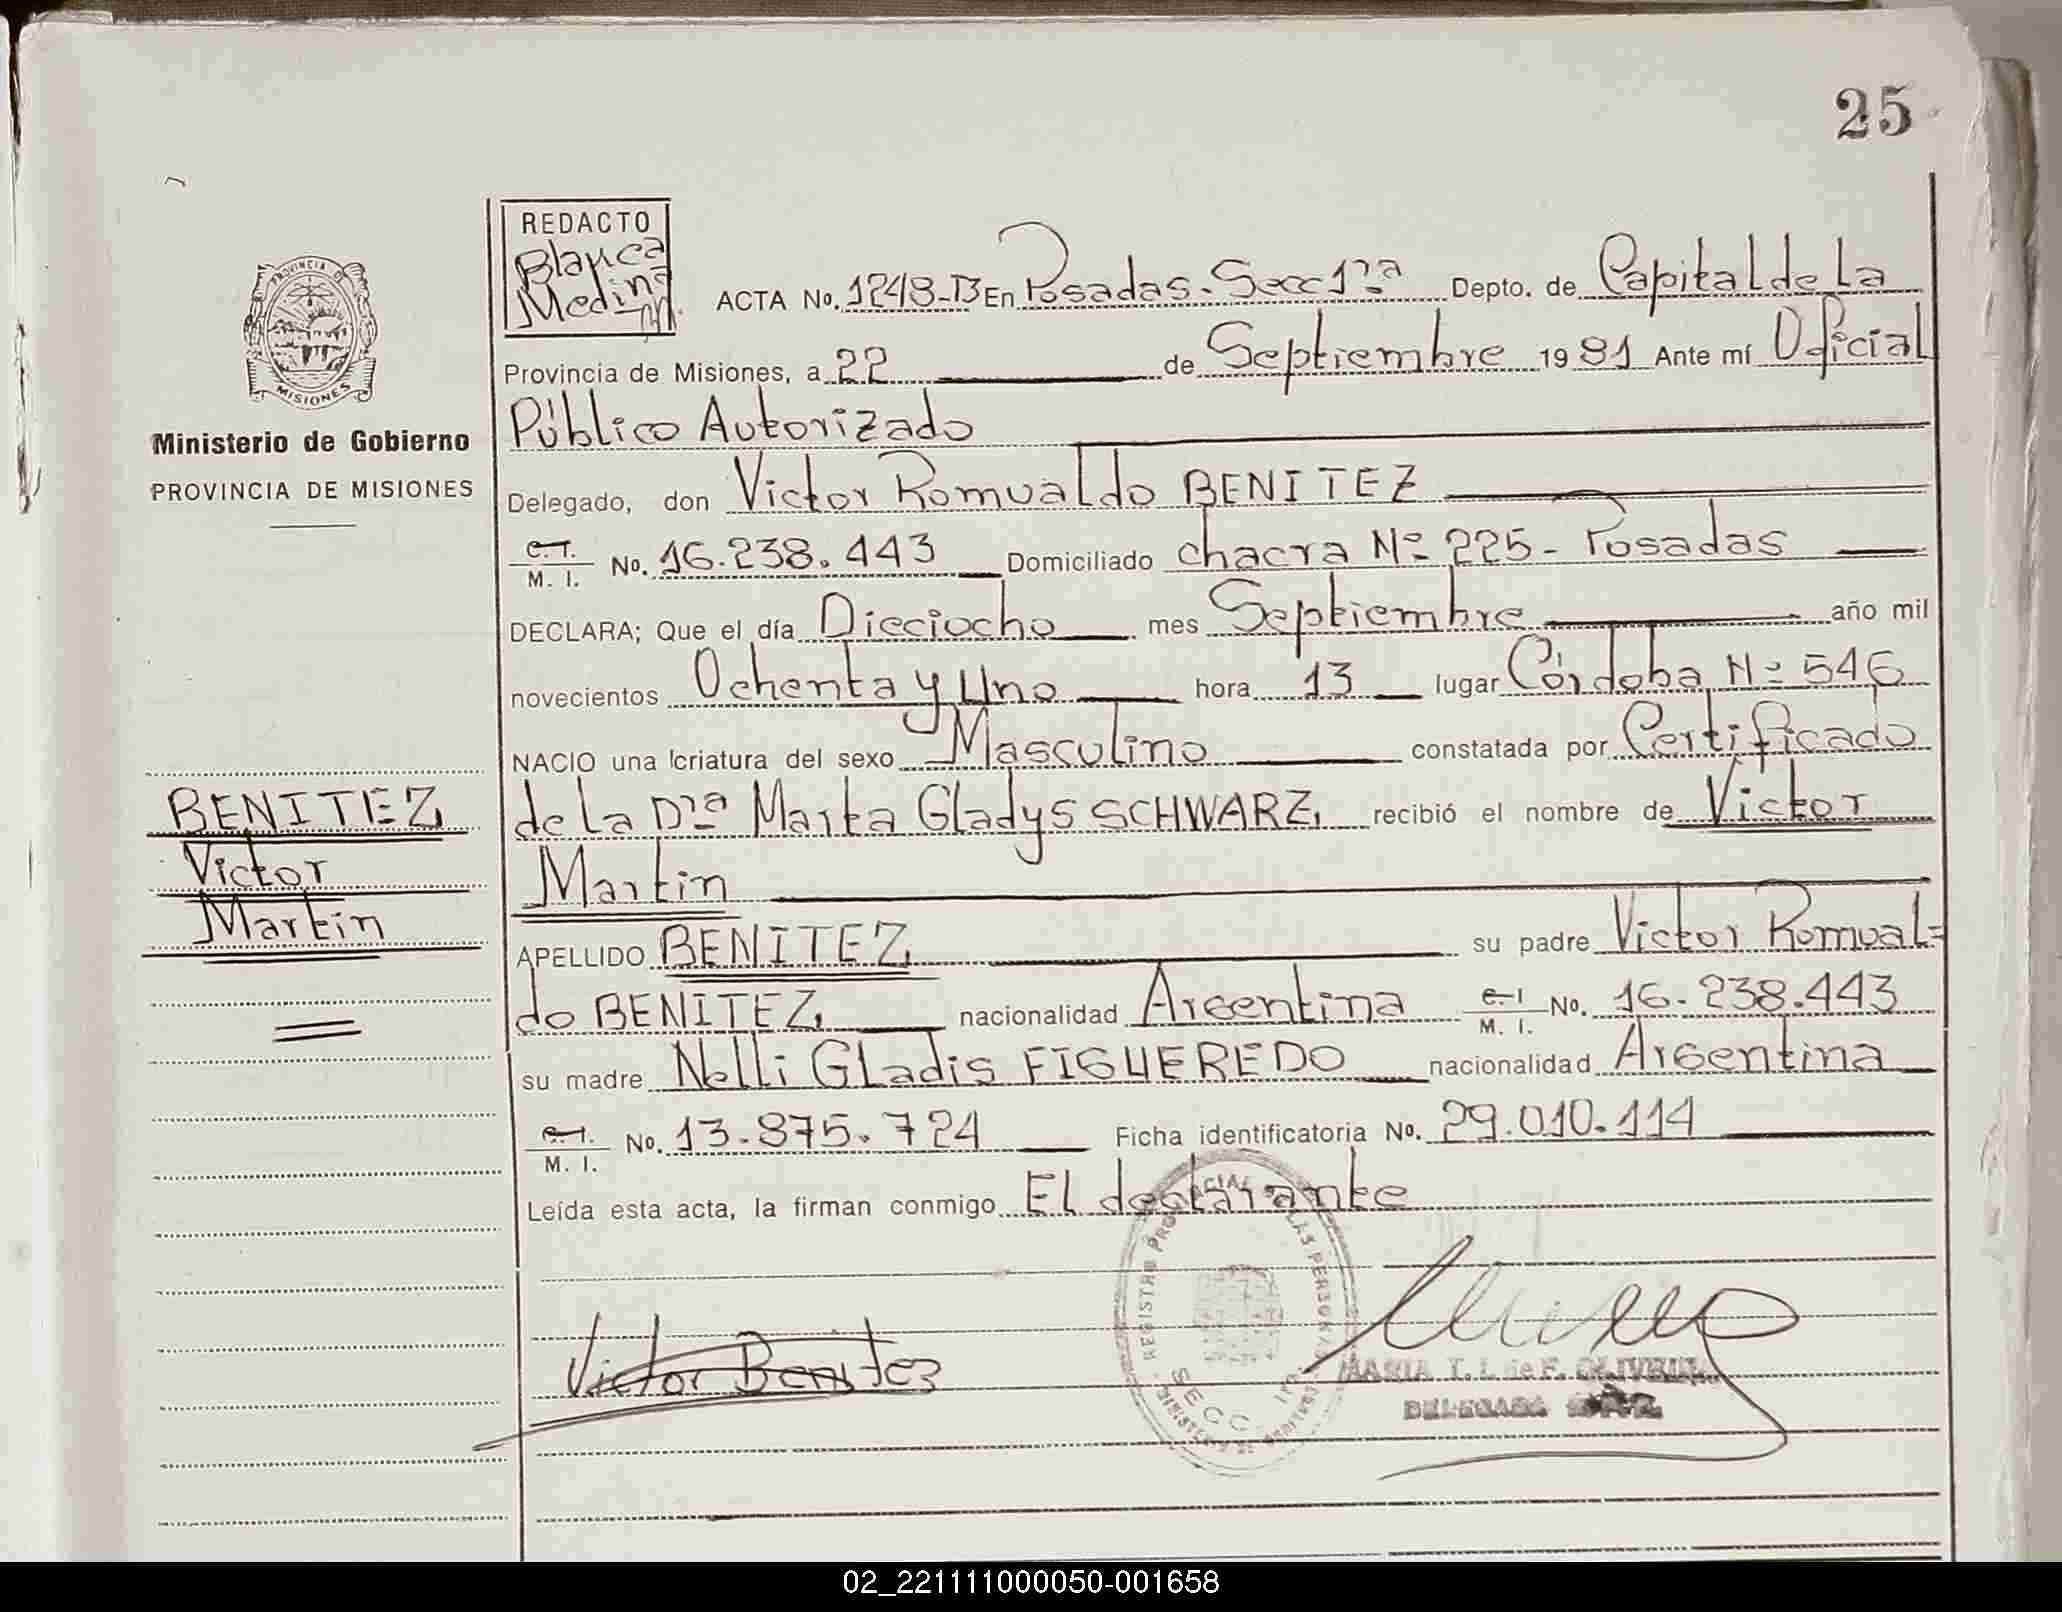 25
REDACTO
Blanca
Medina
ACTA No. 1248-B En Posadas. Secc 1ra Depto. de Capital de La
Provincia de Misiones, a 22 de Septiembre 1981 Ante mí Oficial
Público Autorizado
Delegado, don Victor Romualdo BENITEZ
C.I.
M. I. No. 16.238.443 Domiciliado chacra Nº 225 - Posadas
DECLARA; Que el día Dieciocho mes Septiembre año mil
novecientos Ochenta y Uno hora 13 lugar Córdoba Nº 546
NACIO una criatura del sexo Masculino constatada por Certificado
de la Dra Marta Gladys SCHWARZ, recibió el nombre de Victor
Martin
APELLIDO BENITEZ, su padre Victor Romual=
do BENITEZ, nacionalidad Argentina C.I
M. I. No. 16.238.443
su madre Nelli Gladis FIGUEREDO nacionalidad Argentina
C.I.
M. I. No. 13.875.724 Ficha identificatoria No. 29.010.114
Leída esta acta, la firman conmigo El declarante
Victor Benitez
MARIA T. I. de F.
DELEGADA
REGISTRO
SECC
PROVINCIA DE
MISIONES
Ministerio de Gobierno
PROVINCIA DE MISIONES
BENITEZ,
Victor
Martin
02_221111000050-001658